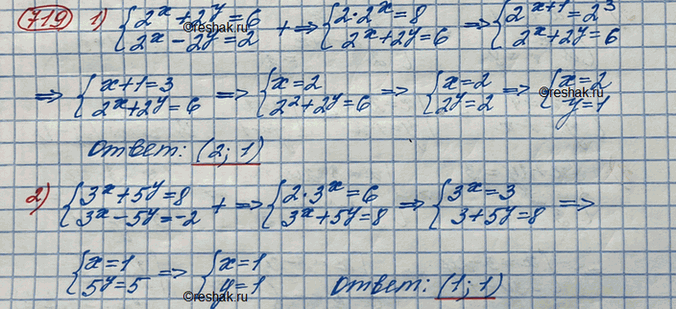 719 1) {2^x + 2^y = 6 2^x - 2^y = 2 + => {2·2^x = 8 2^x + 2^y = 6 => {2^(x+1) = 2^3 2^x + 2^y = 6
=> {x+1=3 2^x+2^y=6 => {x=2 2^2+2^y=6 => {x=2 2^y=2 => {x=2 y=1
Ответ: (2; 1)
2) {3^x + 5^y = 8 3^x - 5^y = -2 + => {2·3^x = 6 3^x + 5^y = 8 => {3^x = 3 3 + 5^y = 8 =>
{x=1 5^y=5 => {x=1 y=1 Ответ: (1; 1)
©reshak.ru
©reshak.ru
©reshak.ru